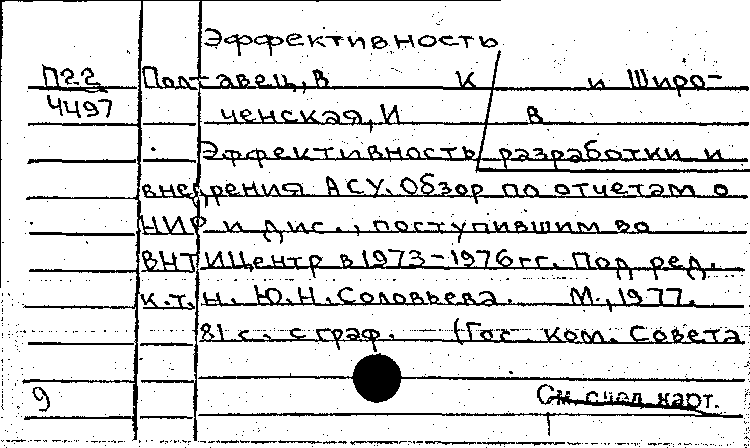 Эффективность
П22 Полтавец, В К и Широ-
4497 ченская, И В
Эффективность разработки и
внедрения АСУ. Обзор по отчетам о
НИР и дис., поступившим во
ВНТИЦентр в 1973-1976гг. Под ред.
к.т.н. Ю.Н. Соловьева. М., 1977.
81 с. с граф. (Гос. ком. Совета
9 См. след. карт.